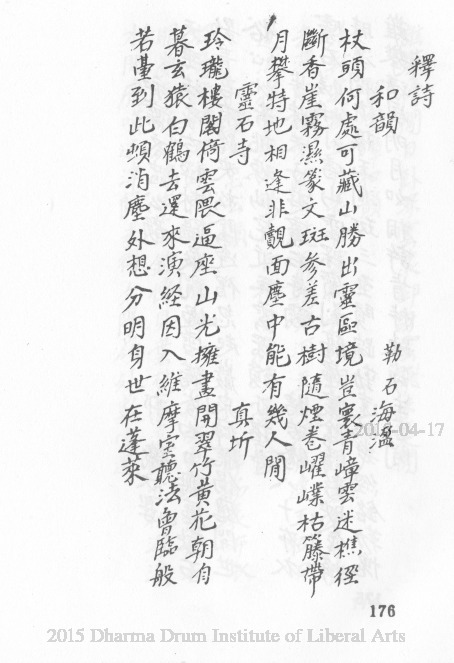 釋詩
和韻　勒石海溫
杖頭何處可藏山勝出靈區境豈寰青嶂雲迷樵徑
斷香崖霧濕篆文斑參差古樹隨煙卷嶫枯籐帶
月攀特地相逢非覿面塵中能有幾人閒
靈石寺　真圻
玲瓏樓閣倚雲隈逼座山光擁畫開翠竹黃花朝自
暮玄猿白鶴去還來演經因入維摩室聽法曾臨般
若臺到此頓消塵外想分明身世在蓬萊
2015-04-17
176
2015 Dharma Drum Institute of Liberal Arts